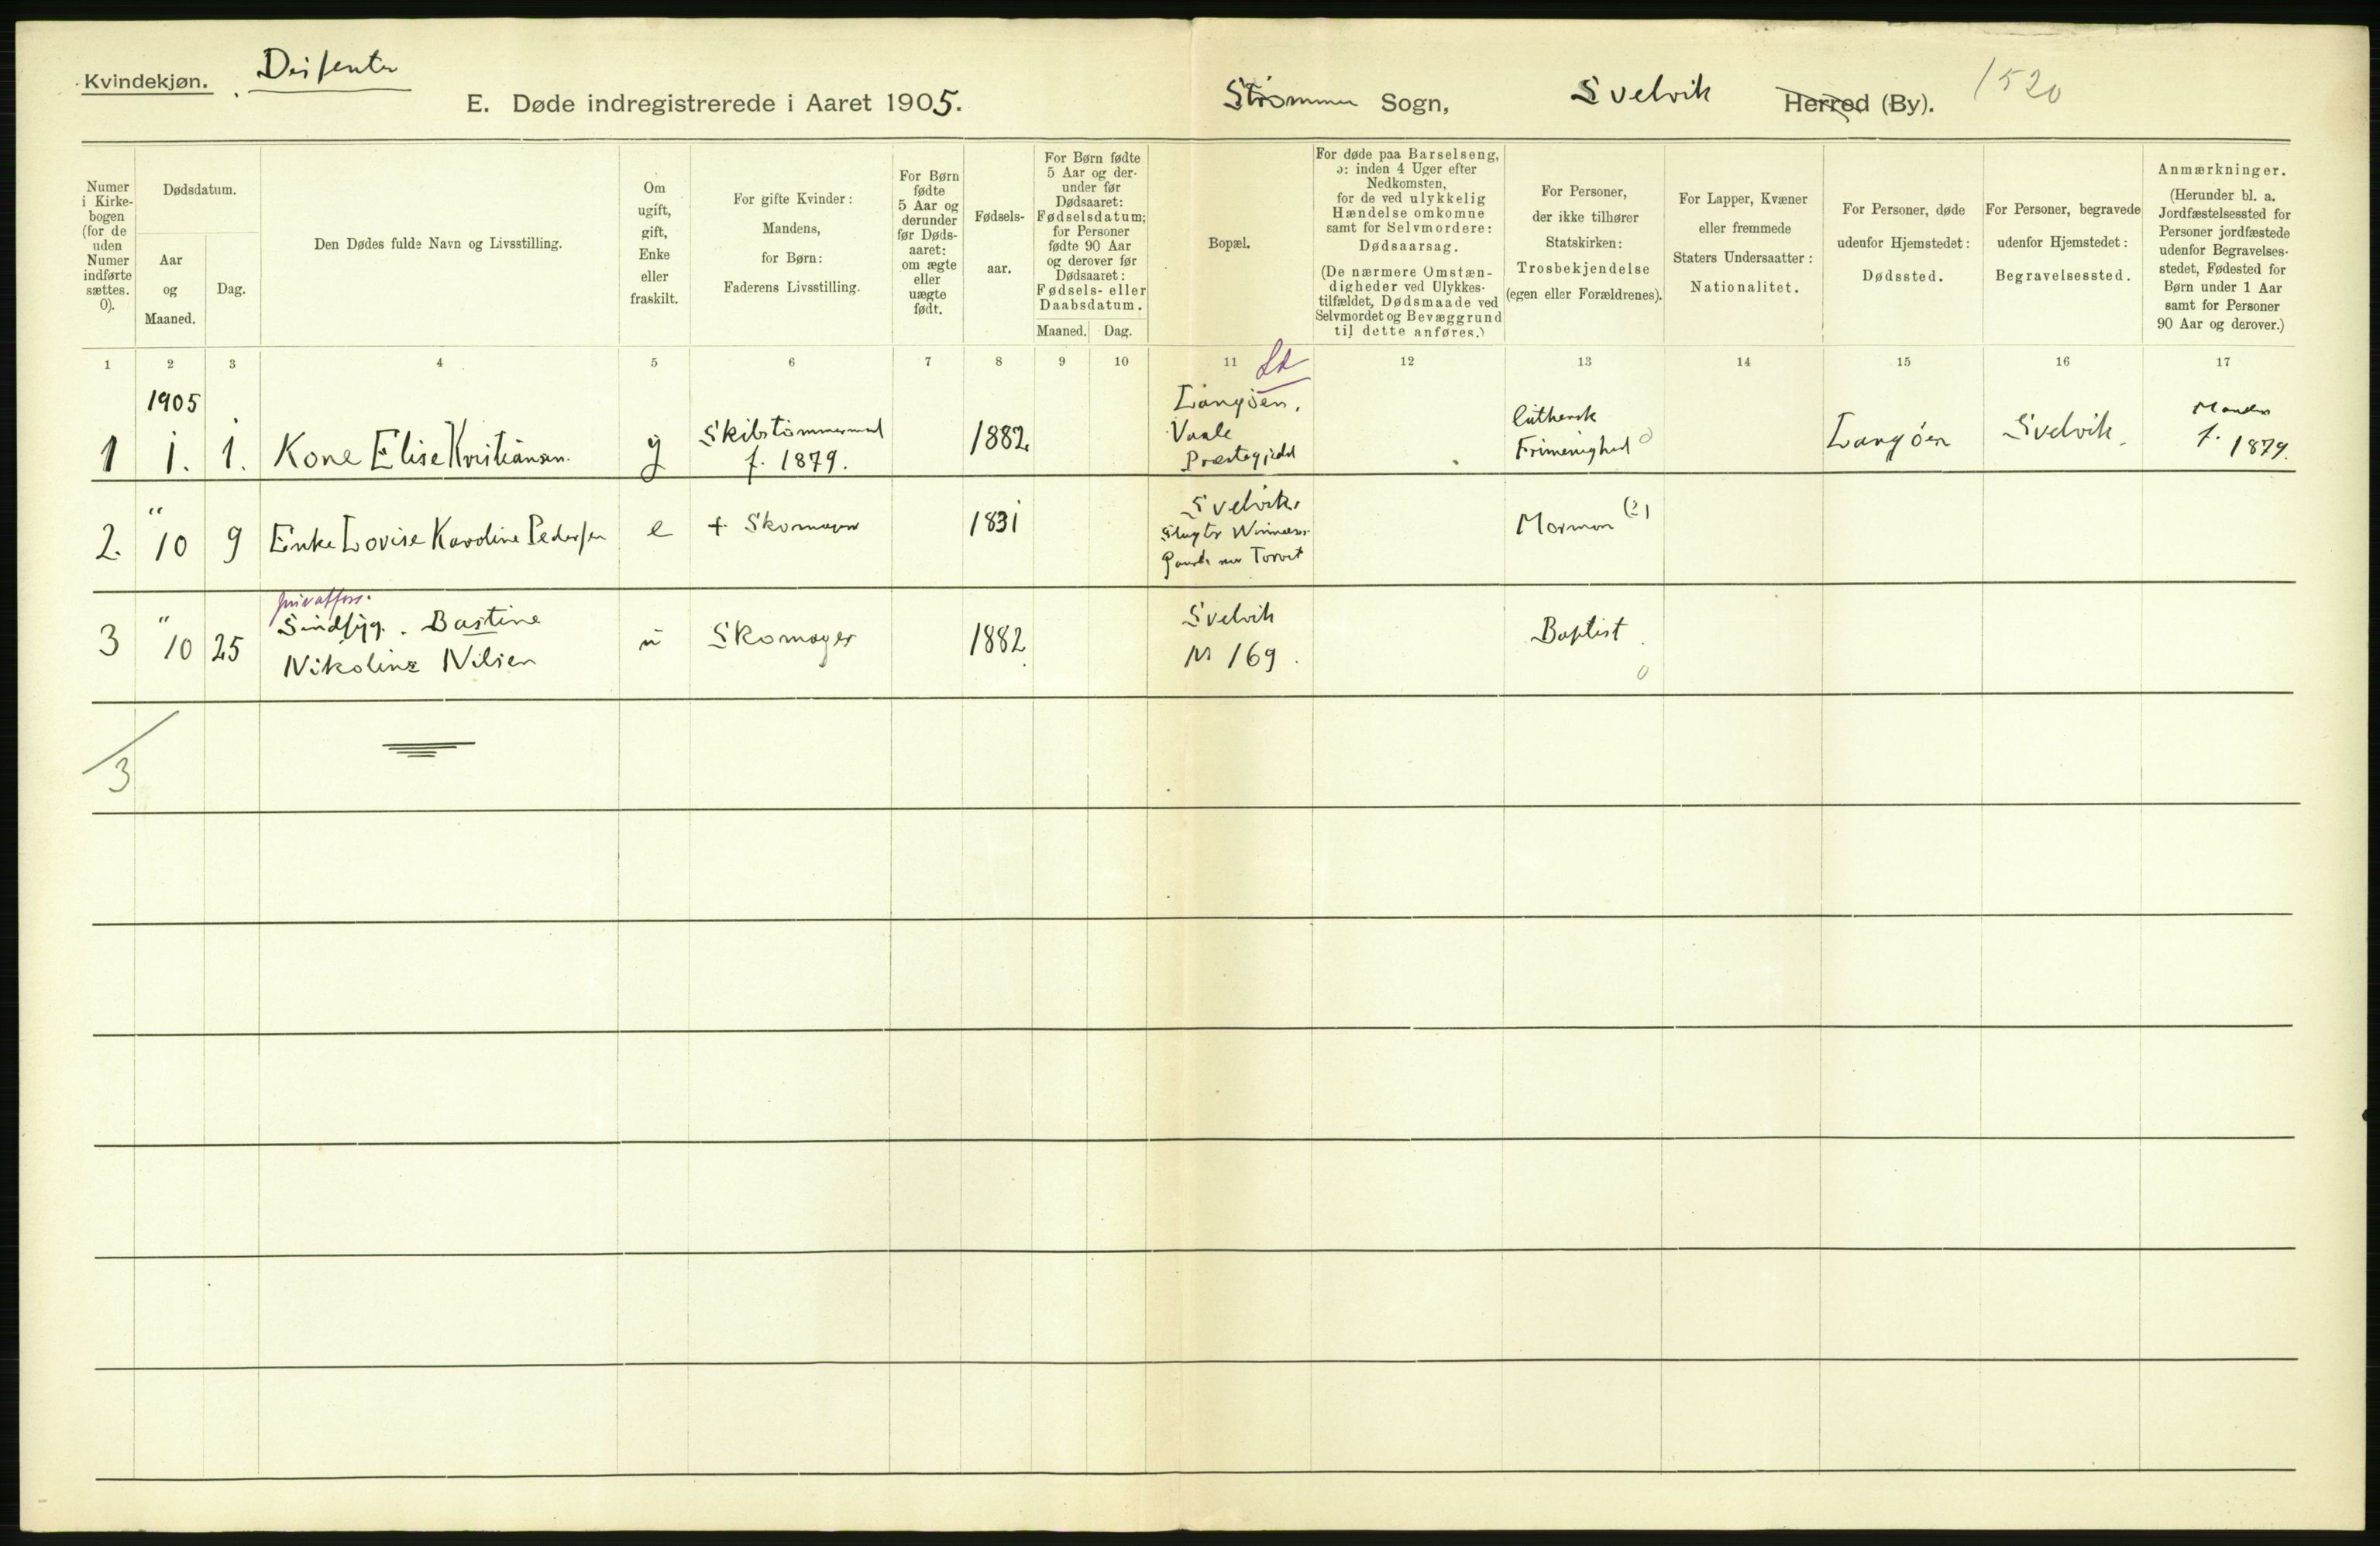 Kvindekjøn.
Disfenter
E. Døde indregistrerede i Aaret 1905.
Strømmen Sogn,
Svelvik
Herred (By).
1520
Numer
i Kirke-
bogen
(for de
uden
Numer
indførte
sættes.
0).
Dødsdatum.
Aar
og
Maaned.
Dag.
Den Dødes fulde Navn og Livsstilling.
Om
ugift,
gift,
Enke
eller
fraskilt.
For gifte Kvinder:
Mandens,
for Børn:
Faderens Livsstilling.
For Børn
fødte
5 Aar og
derunder
før Døds-
aaret:
om ægte
eller
uægte
født.
Fødsels-
aar.
For Børn fødte
5 Aar og der-
under før
Dødsaaret:
Fødselsdatum;
for Personer
fødte 90 Aar
og derover før
Dødsaaret:
Fødsels- eller
Daabsdatum.
Maaned.
Dag.
Bopæl.
For døde paa Barselseng,
ɔ: inden 4 Uger efter
Nedkomsten,
for de ved ulykkelig
Hændelse omkomne
samt for Selvmordere:
Dødsaarsag.
(De nærmere Omstæn-
digheder ved Ulykkes-
tilfældet, Dødsmaade ved
Selvmordet og Bevæggrund
til dette anføres.)
For Personer,
der ikke tilhører
Statskirken:
Trosbekjendelse
(egen eller Forældrenes).
For Lapper, Kvæner
eller fremmede
Staters Undersaatter:
Nationalitet.
For Personer, døde
udenfor Hjemstedet:
Dødssted.
For Personer, begravede
udenfor Hjemstedet:
Begravelsessted.
Anmærkninger.
(Herunder bl. a.
Jordfæstelsessted for
Personer jordfæstede
udenfor Begravelses-
stedet, Fødested for
Børn under 1 Aar
samt for Personer
90 Aar og derover.)
1 2 3 4 5 6 7 8 9 10 11 12 13 14 15 16 17
1905
1 1. 1. Kone Elise Kristiansen. g
Skibstömmermand
f. 1879.
1882
Langöen,
Vaale
Præstegjeld
luthersk
Frimenighed
Langöen
Svelvik.
Mandens
f. 1879.
"
2. 10 9 Enke Lovise Karoline Pedersen e + Skomager 1831
Svelvik,
Torvet
Mormon (?)
"
3 10 25
privat fors.
Sindsyg. Bastine
Nikoline Nilsen
u Skomager 1882
Svelvik
N 169.
Baptist
3